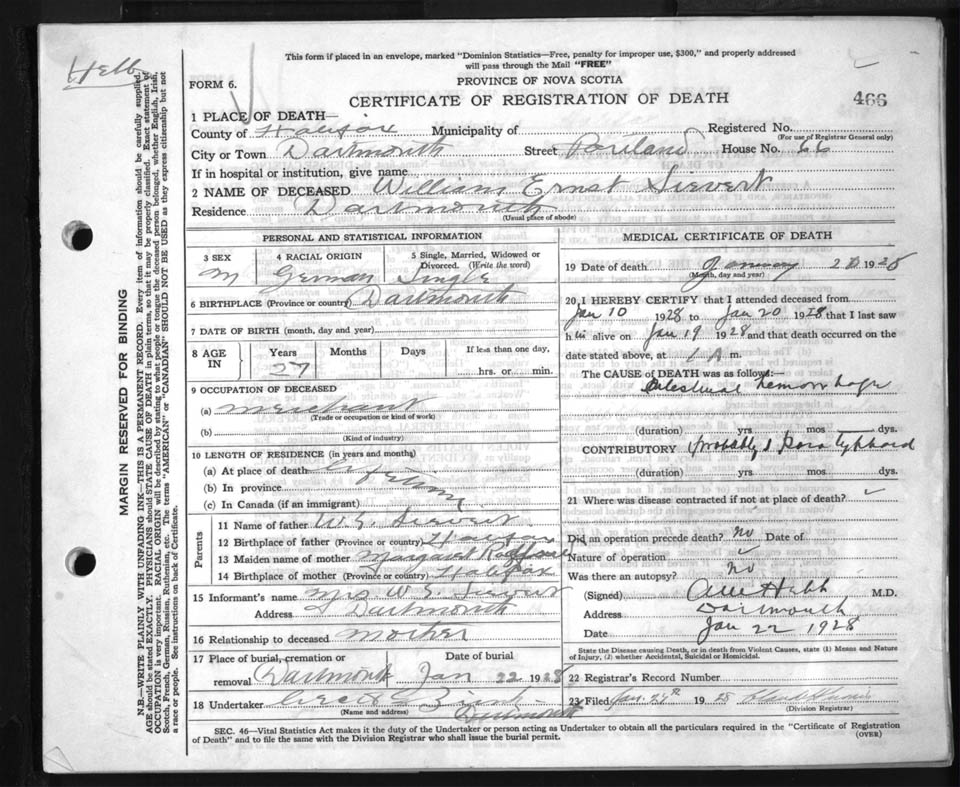 Hebb
This form if placed in an envelope, marked "Dominion Statistics—Free, penalty for improper use, $300," and properly addressed
will pass through the Mail "FREE"
FORM 6.
PROVINCE OF NOVA SCOTIA
CERTIFICATE OF REGISTRATION OF DEATH
466
1 PLACE OF DEATH—
County of Halifax Municipality of Registered No.
(For use of Registrar General only)
City or Town Dartmouth Street Portland House No. 66
If in hospital or institution, give name
2 NAME OF DECEASED William Ernst Sievert
Residence Dartmouth
(Usual place of abode)
PERSONAL AND STATISTICAL INFORMATION
3 SEX 4 RACIAL ORIGIN 5 Single, Married, Widowed or
Divorced. (Write the word)
M German Single
6 BIRTHPLACE (Province or country) Dartmouth
7 DATE OF BIRTH (month, day and year)
8 AGE IN Years Months Days If less than one day,
27 hrs. or min.
9 OCCUPATION OF DECEASED
(a) Merchant
(Trade or occupation or kind of work)
(b)
(Kind of industry)
10 LENGTH OF RESIDENCE (in years and months)
(a) At place of death
(b) In province
(c) In Canada (if an immigrant)
Parents
11 Name of father W. E. Sievert
12 Birthplace of father (Province or country) Halifax
13 Maiden name of mother Margaret
14 Birthplace of mother (Province or country) Halifax
15 Informant's name Mrs W. E. Sievert
Address Dartmouth
16 Relationship to deceased Mother
17 Place of burial, cremation or Date of burial
removal Dartmouth Jan 22 1928
18 Undertaker
(Name and address)
Dartmouth
MEDICAL CERTIFICATE OF DEATH
19 Date of death January 20 1928
(Month, day and year)
20 I HEREBY CERTIFY that I attended deceased from
Jan 10 1928 to Jan 20 1928 that I last saw
him alive on Jan 19 1928 and that death occurred on the
date stated above, at 1 A m.
The CAUSE of DEATH was as follows:
Intestinal hemorrhage
(duration) yrs mos dys.
CONTRIBUTORY Probably Para typhoid
(duration) yrs. mos. dys.
21 Where was disease contracted if not at place of death?
Did an operation precede death? No Date of
Nature of operation
Was there an autopsy? No
(Signed) Hebb M.D.
Address Dartmouth
Date Jan 22 1928
State the Disease causing Death, or in death from Violent Causes, state (1) Means and Nature
of Injury, (2) whether Accidental, Suicidal or Homicidal.
22 Registrar's Record Number
23 Filed Jan. 24th 1928
(Division Registrar)
SEC. 46—Vital Statistics Act makes it the duty of the Undertaker or person acting as Undertaker to obtain all the particulars required in the "Certificate of Registration
of Death" and to file the same with the Division Registrar who shall issue the burial permit.
(OVER)
MARGIN RESERVED FOR BINDING
N.B.—WRITE PLAINLY WITH UNFADING INK—THIS IS A PERMANENT RECORD. Every item of information should be carefully supplied.
AGE should be stated EXACTLY. PHYSICIANS should STATE CAUSE OF DEATH in plain terms, so that it may be properly classified. Exact statement of
OCCUPATION is very important. RACIAL ORIGIN will be described by stating to what people or tongue the deceased persons belonged, whether English, Irish,
Scotch, French, German, Russian, Ruthenian, etc. The terms "AMERICAN" or "CANADIAN" SHOULD NOT BE USED as they express citizenship but not
a race or people. See instructions on back of Certificate.